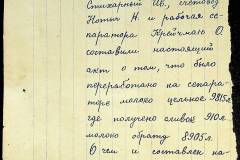 Стихарный Ив, счетовод
Котыч Н. и рабочая се-
паратора Крейчмаю О.
составили настоящий
акт о том, что было
переработано на сепара-
торе молоко цельное 9815л.
где получено сливок 910л
молоко обрату 8905л.
О чем и составлен на-